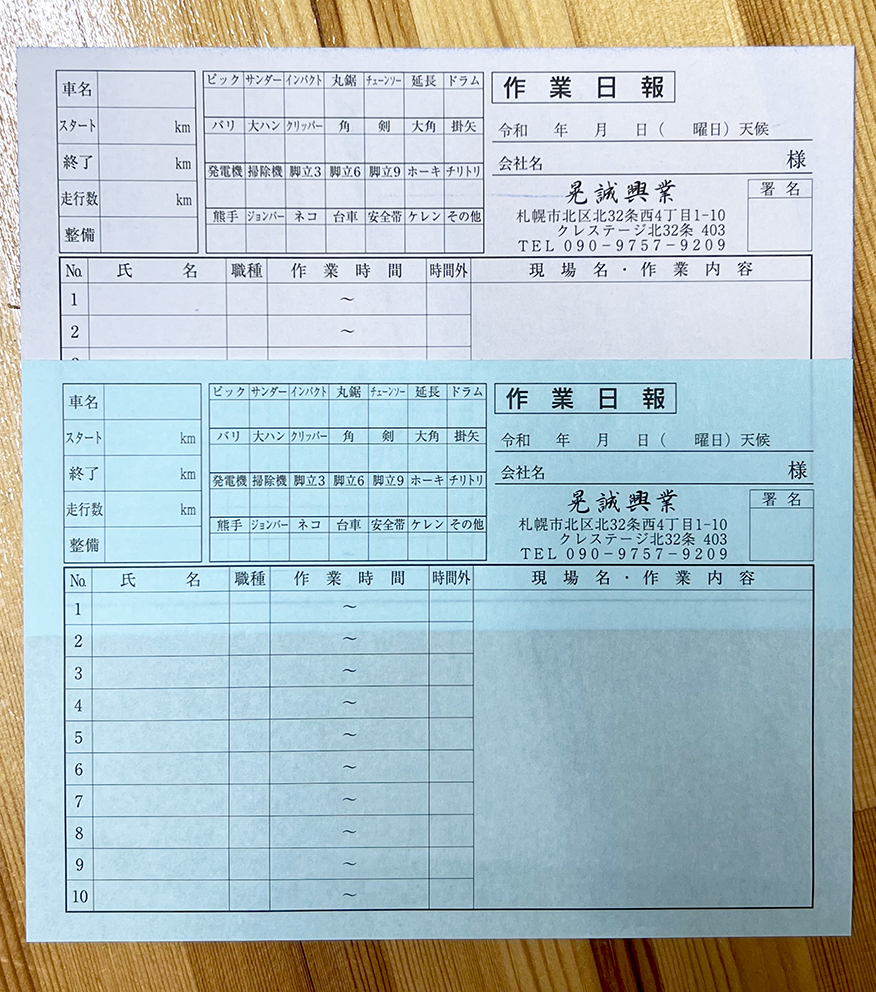 車名
スタート km
終了 km
走行数 km
整備
ピック サンダー インパクト 丸鋸 チェーンソー 延長 ドラム
バリ 大ハン クリッパー 角 剣 大角 掛矢
発電機 掃除機 脚立3 脚立6 脚立9 ホーキ チリトリ
熊手 ジョンバー ネコ 台車 安全帯 ケレン その他
作業日報
令和 年 月 日( 曜日) 天候
会社名 様
晃誠興業
札幌市北区北32条西4丁目1-10
クレステージ北32条 403
TEL 090-9757-9209
署名
No. 氏名 職種 作業時間 時間外 現場名・作業内容
1 ～
2 ～
車名
スタート km
終了 km
走行数 km
整備
ピック サンダー インパクト 丸鋸 チェーンソー 延長 ドラム
バリ 大ハン クリッパー 角 剣 大角 掛矢
発電機 掃除機 脚立3 脚立6 脚立9 ホーキ チリトリ
熊手 ジョンバー ネコ 台車 安全帯 ケレン その他
作業日報
令和 年 月 日( 曜日) 天候
会社名 様
晃誠興業
札幌市北区北32条西4丁目1-10
クレステージ北32条 403
TEL 090-9757-9209
署名
No. 氏名 職種 作業時間 時間外 現場名・作業内容
1 ～
2 ～
3 ～
4 ～
5 ～
6 ～
7 ～
8 ～
9 ～
10 ～